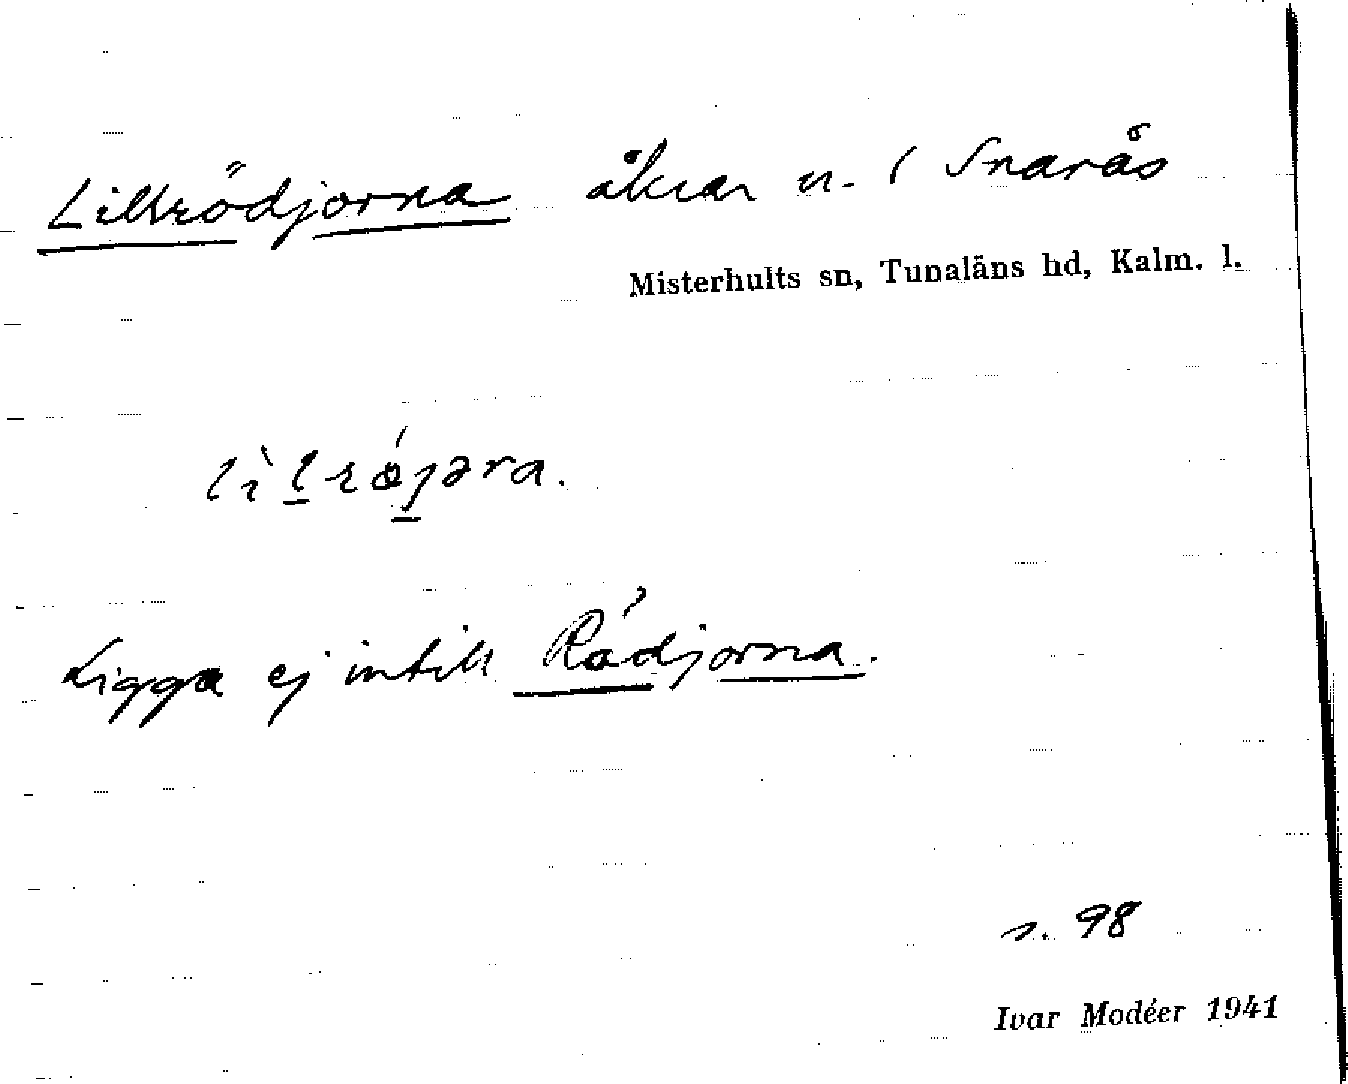 Lillrödjorna åkrar n. i Snarås
Misterhults sn, Tunaläns hd, Kalm. l.
Ligga ej intill Rödjorna.
s. 98
Ivar Modéer 1941